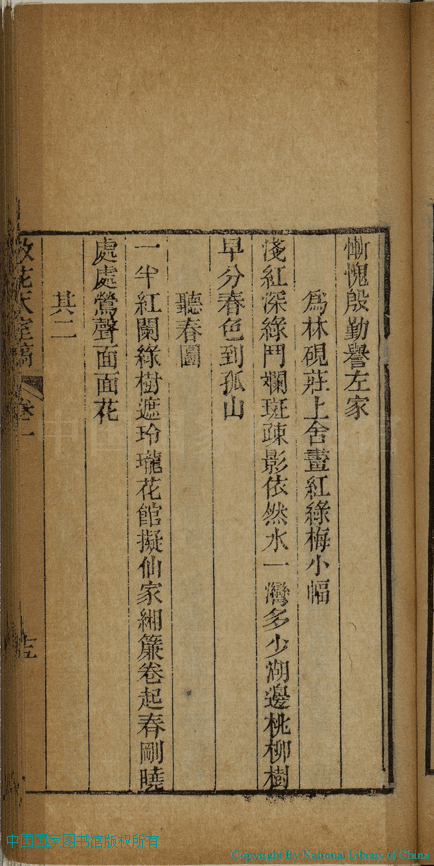 慚愧殷勤譽左家
為林硯莊上舍畫紅綠梅小幅
淺紅深綠鬥斕斑疎影依然水一灣多少湖邊桃柳樹
早分春色到孤山
聽春圖
一半紅闌綠樹遮玲瓏花館擬仙家緗簾卷起春剛曉
處處鶯聲面面花
其二
散花天室稿 卷一
中国国家图书馆版权所有
Copyright By National Library of China